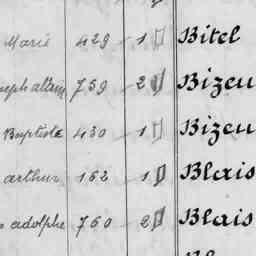 Marie 429 1 Bitel
759 2 Bizeu
Baptiste 430 1 Bizeu
arthur 162 1 Blais
adolphe 760 2 Blais